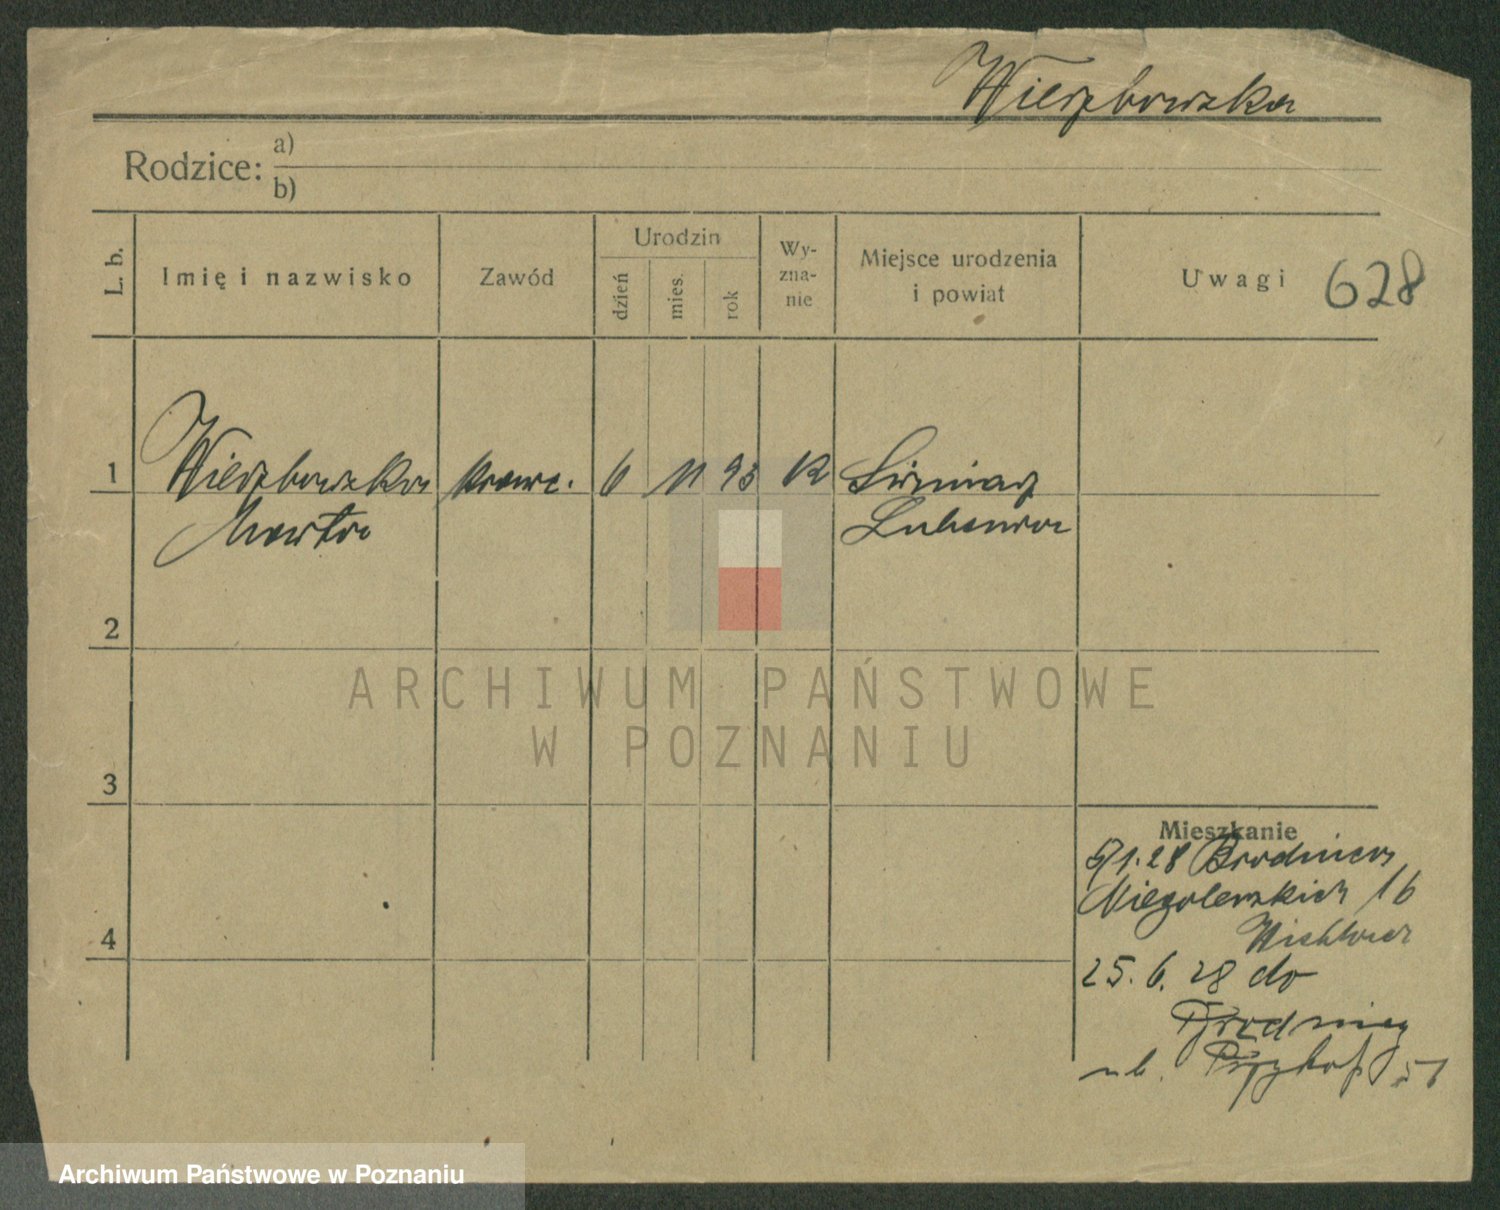 Wierzbowska
Rodzice: a)
b)
L. b.
Imię i nazwisko
Zawód
Urodzin
dzień
mies.
rok
Wy-
zna-
nie
Miejsce urodzenia
i powiat
Uwagi
628
1
Wierzbowska
Marta
krawc.
6
11
93
K
Lubawa
2
3
4
Mieszkanie
5/1.28 Brodnica
Niegolewskich 16
25. 6. 28 do
Brodnicy
ul. Przykop 51
ARCHIWUM PAŃSTWOWE
W POZNANIU
Archiwum Państwowe w Poznaniu